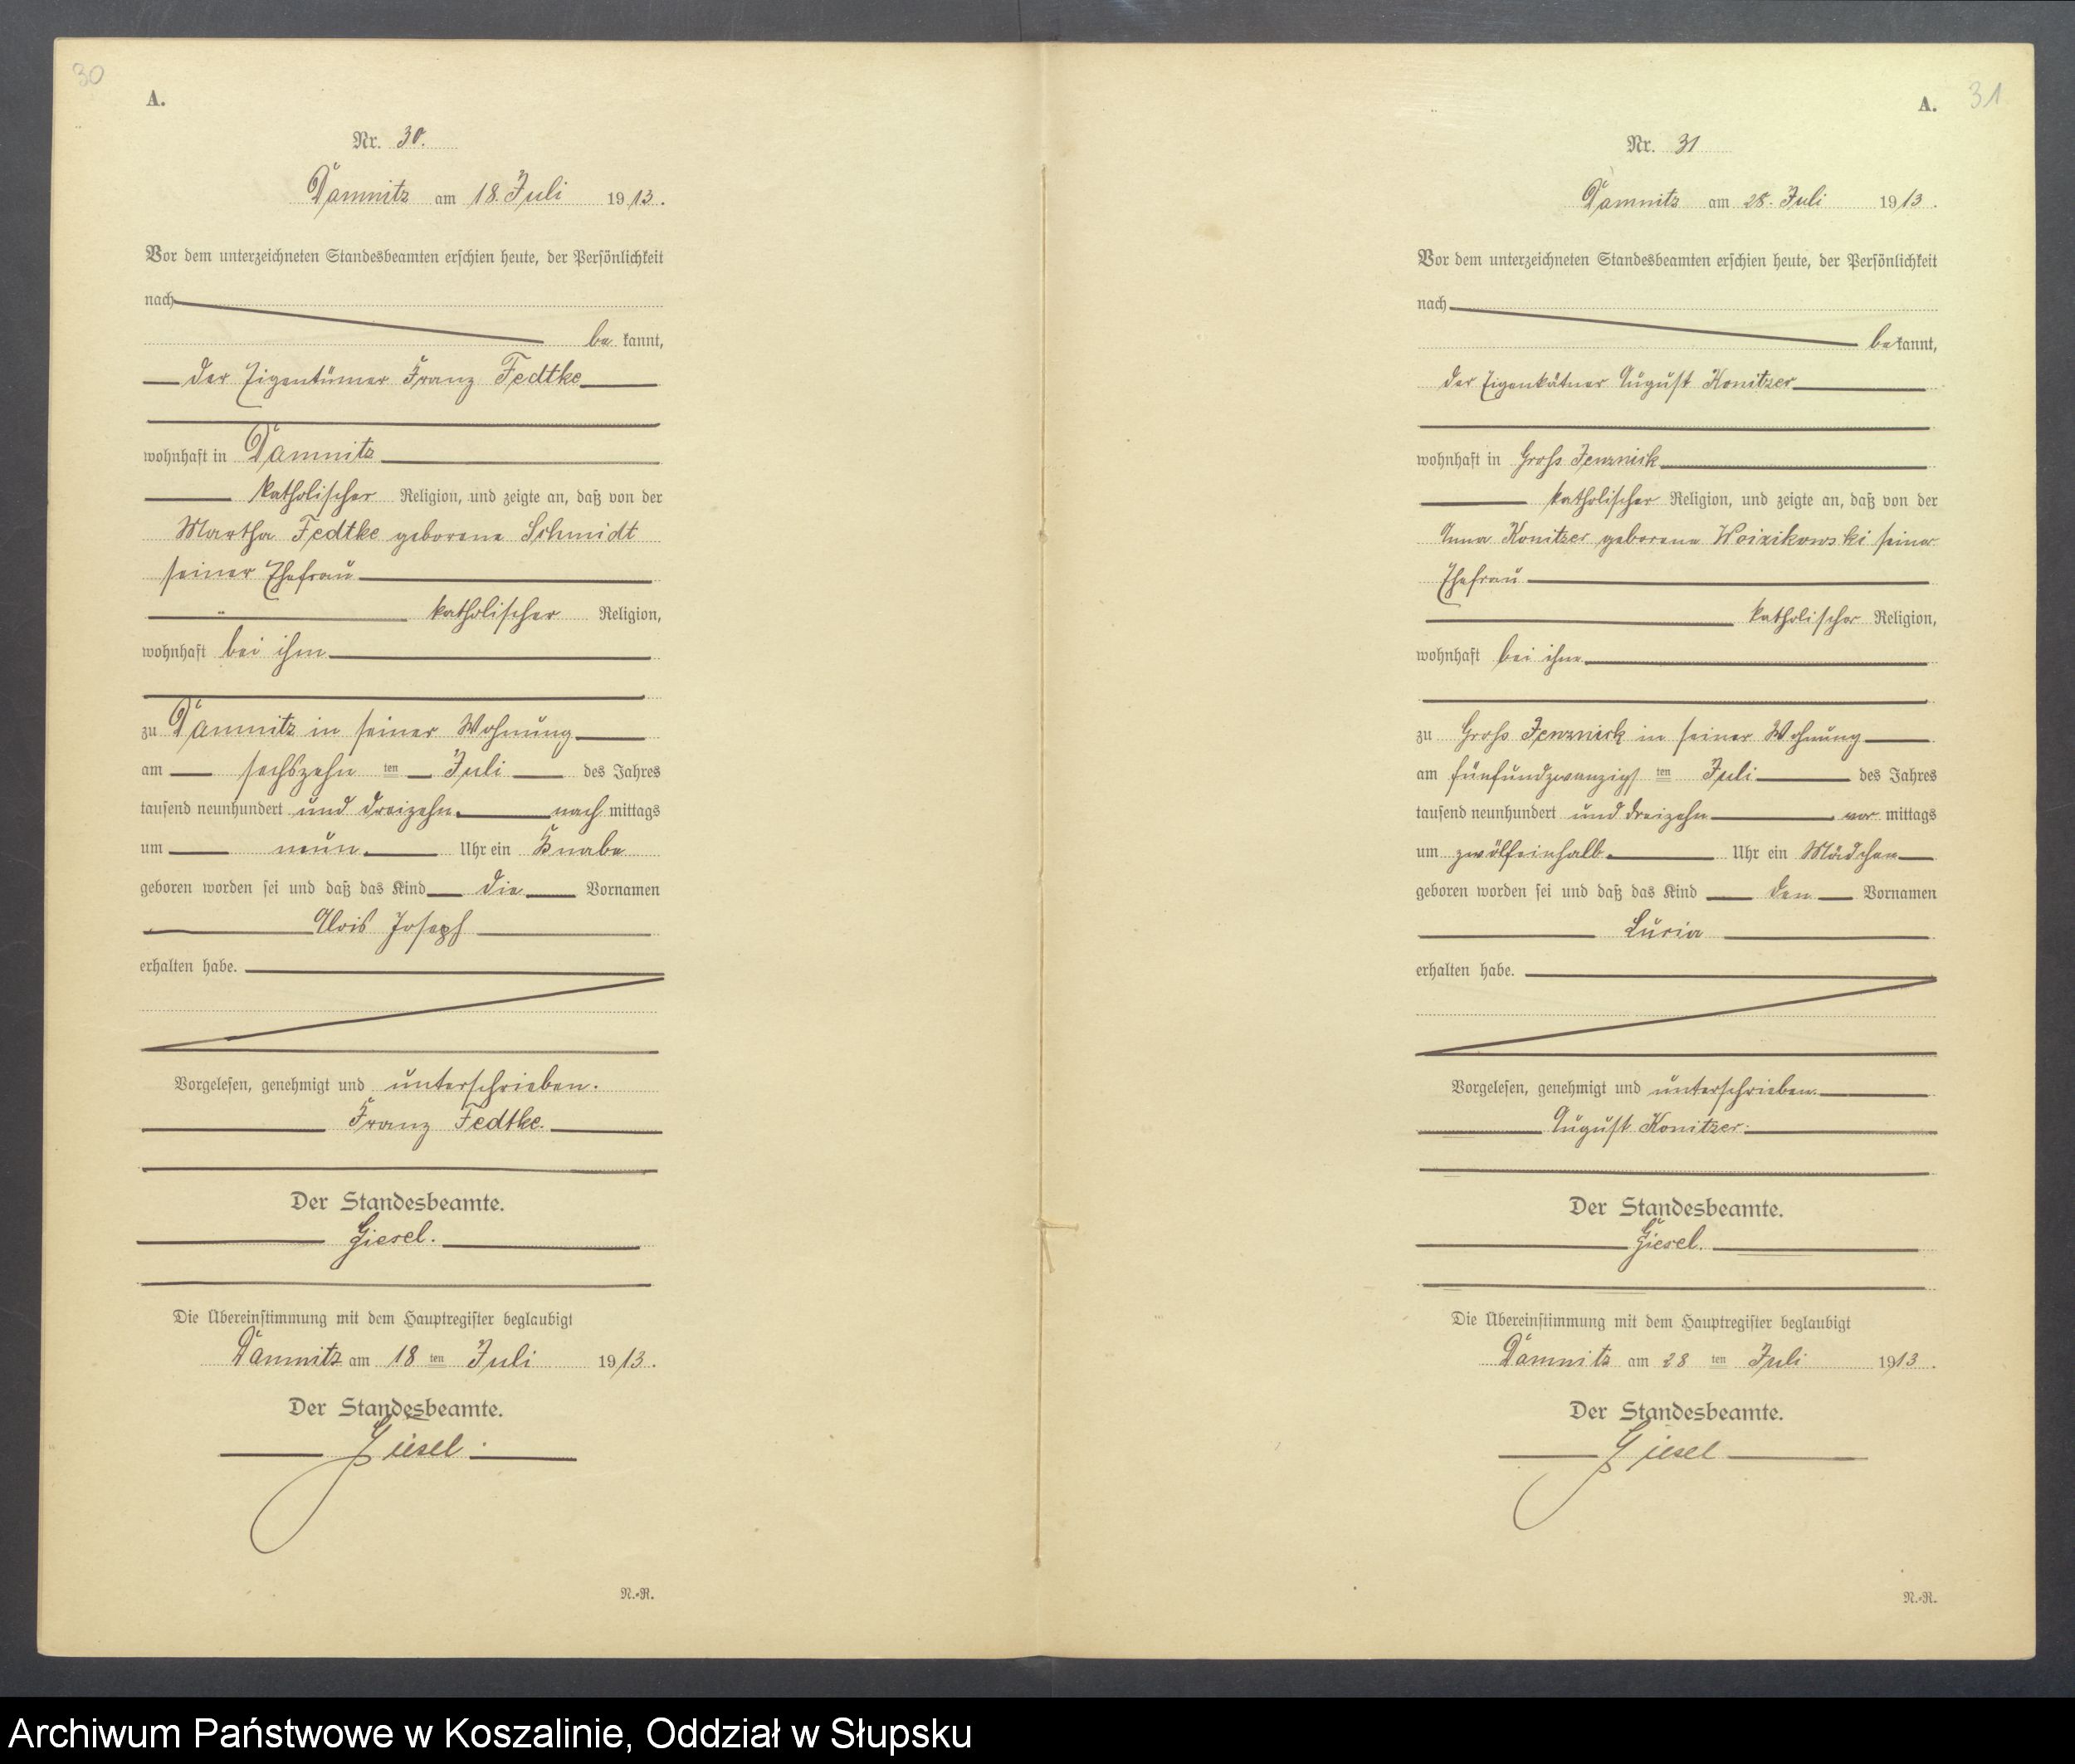 30
A.
Nr. 30.
Damnitz am 18. Juli 1913.
Vor dem unterzeichneten Standesbeamten erschien heute, der Persönlichkeit
nach
be kannt,
der Eigentümer Franz Fedtke
wohnhaft in Damnitz
katholischer Religion, und zeigte an, daß von der
Martha Fedtke geborene Schmidt
seiner Ehefrau
katholischer Religion,
wohnhaft bei ihm
zu Damnitz in seiner Wohnung
am sechszehn ten Juli des Jahres
tausend neunhundert und dreizehn nach mittags
um neun Uhr ein Knabe
geboren worden sei und daß das Kind die Vornamen
Alois Joseph
erhalten habe.
Vorgelesen, genehmigt und unterschrieben.
Franz Fedtke.
Der Standesbeamte.
Giesel.
Die Übereinstimmung mit dem Hauptregister beglaubigt
Damnitz am 18 ten Juli 1913.
Der Standesbeamte.
Giesel.
N.-R.
31
A.
Nr. 31
Damnitz am 28. Juli 1913.
Vor dem unterzeichneten Standesbeamten erschien heute, der Persönlichkeit
nach
bekannt,
der Eigenkätner August Konitzer
wohnhaft in Gross Jenznick
katholischer Religion, und zeigte an, daß von der
Anna Konitzer geborene Woizikowski seiner
Ehefrau
katholischer Religion,
wohnhaft bei ihm
zu Gross Jenznick in seiner Wohnung
am fünfundzwanzigs ten Juli des Jahres
tausend neunhundert und dreizehn vor mittags
um zwölfeinhalb Uhr ein Mädchen
geboren worden sei und daß das Kind den Vornamen
Luzia
erhalten habe.
Vorgelesen, genehmigt und unterschrieben.
August Konitzer.
Der Standesbeamte.
Giesel.
Die Übereinstimmung mit dem Hauptregister beglaubigt
Damnitz am 28 ten Juli 1913.
Der Standesbeamte.
Giesel
N.-R.
Archiwum Państwowe w Koszalinie, Oddział w Słupsku